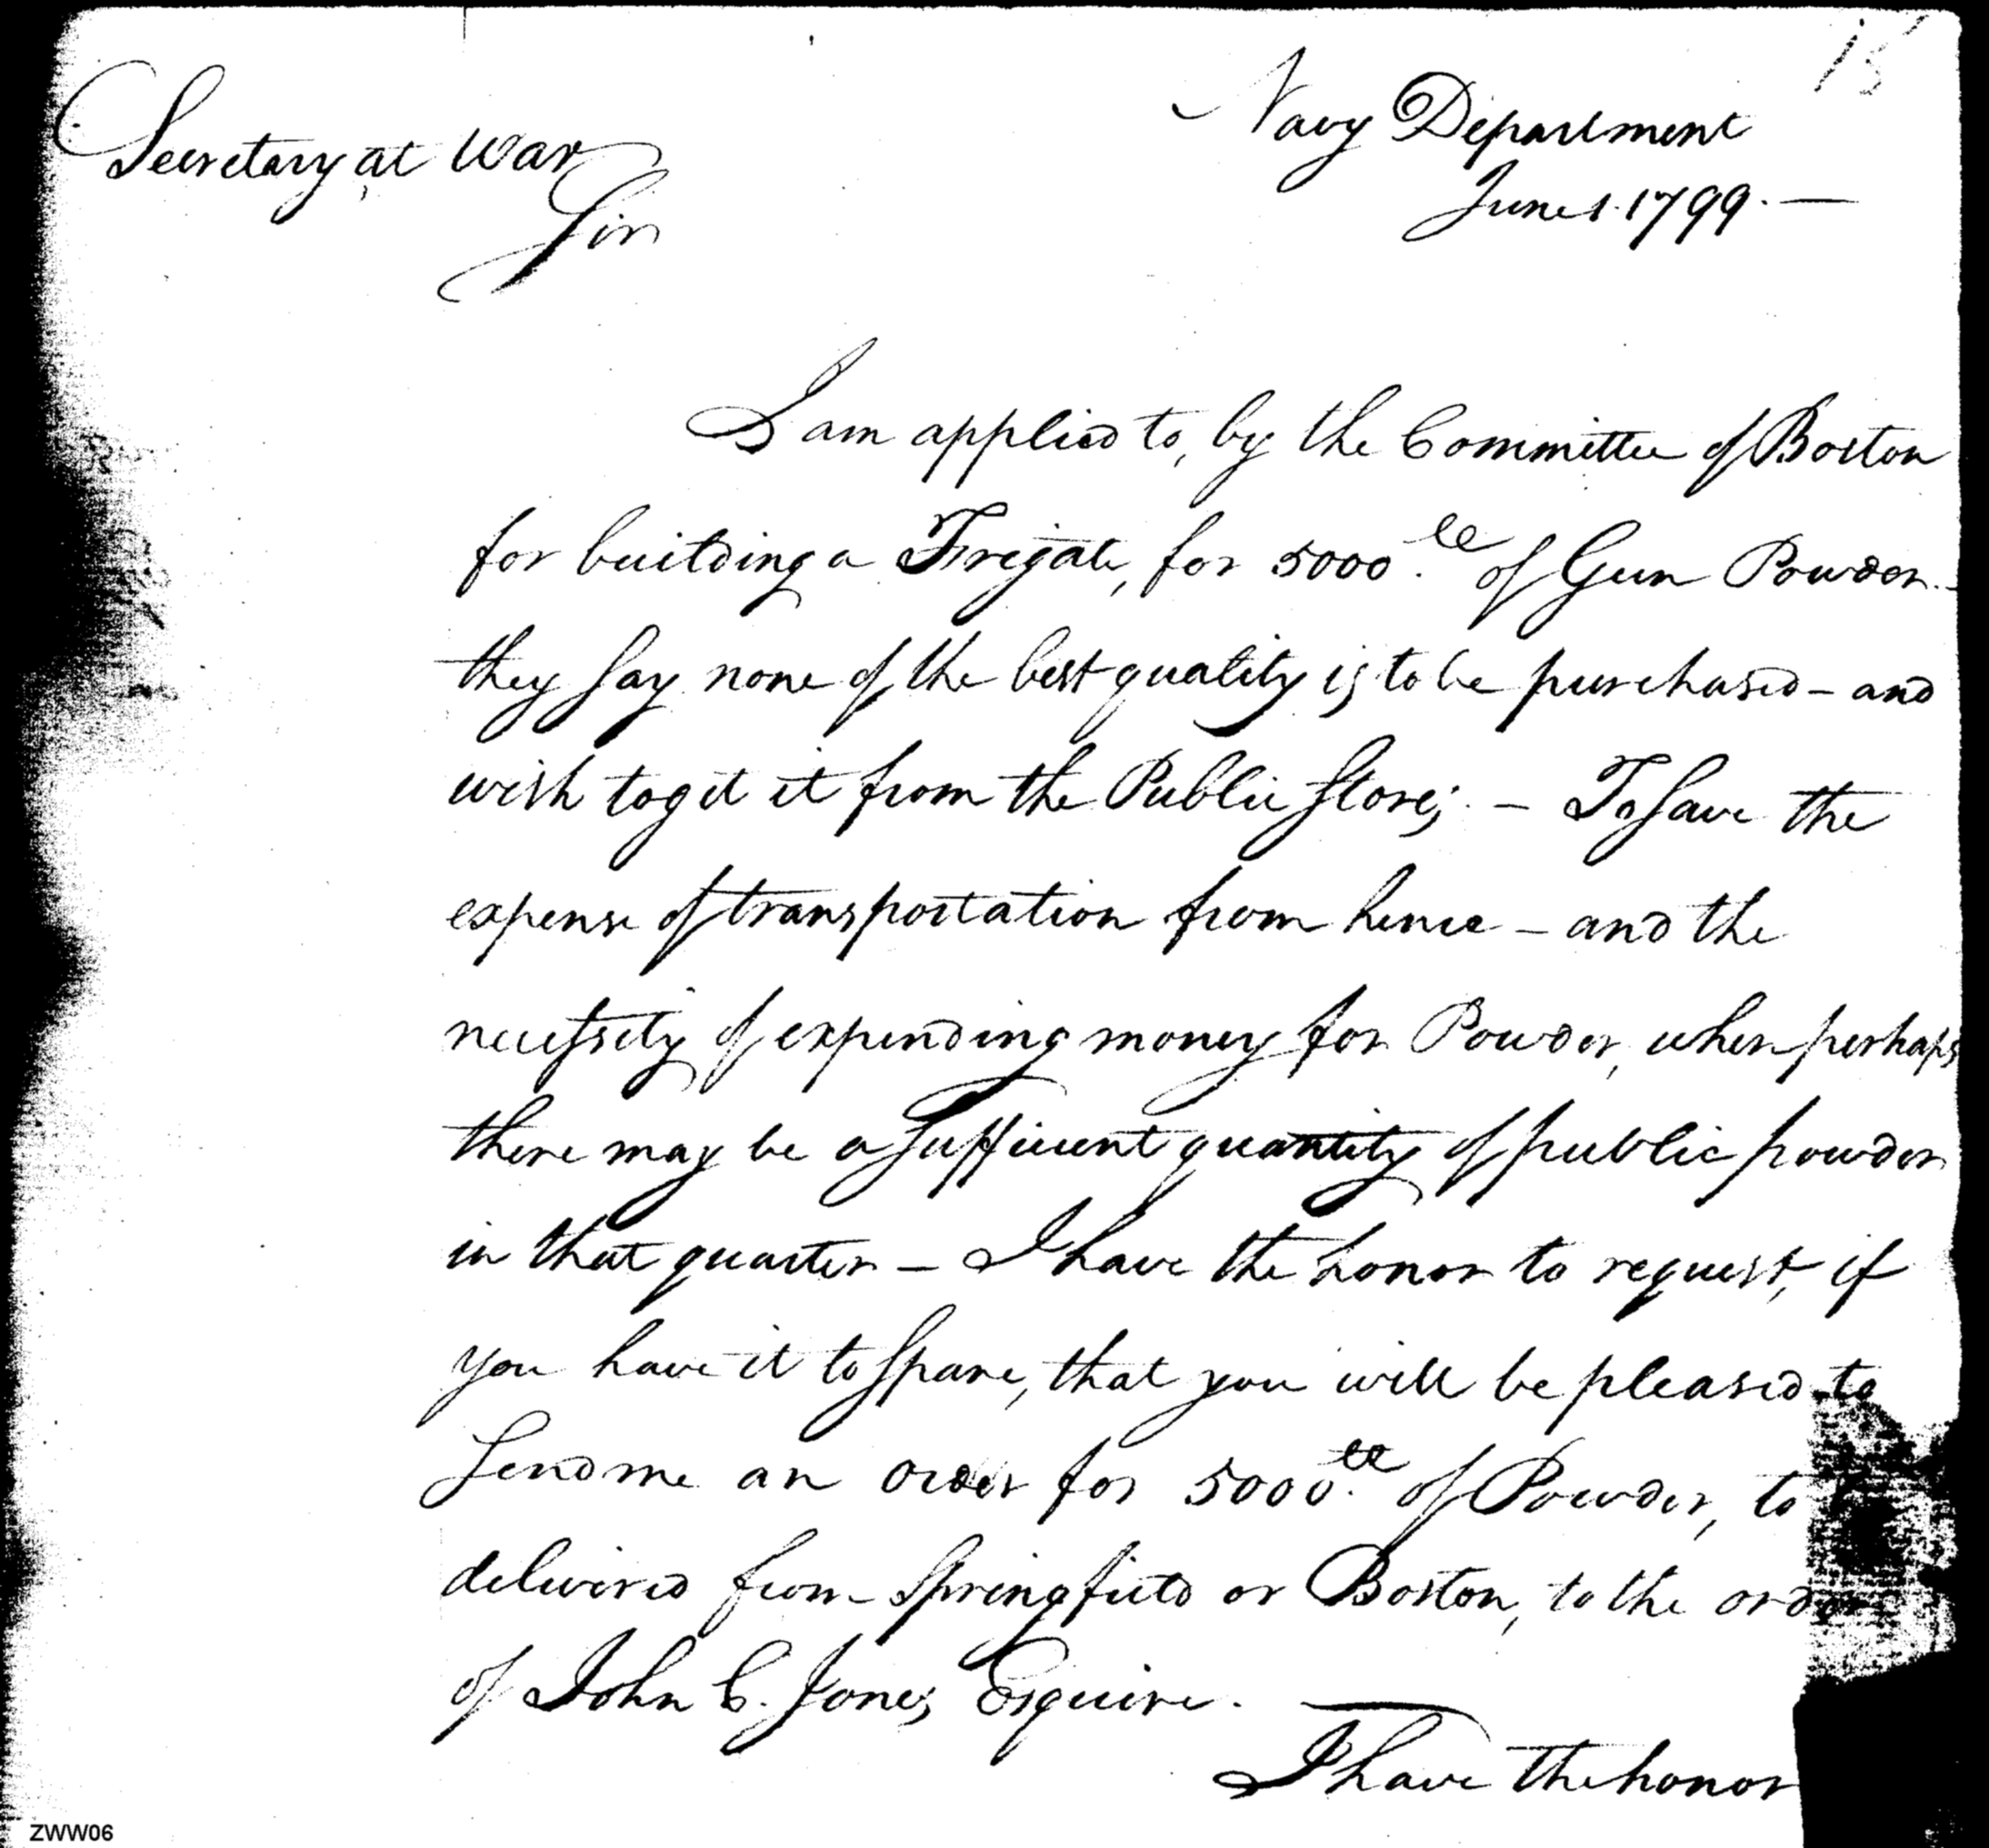 15
Navy Department
Secretary at War
June 1. 1799. —
Sir
I am applied to, by the Committee of Boston
for building a Frigate, for 5000.lb of Gun Powder. –
they say none of the best quality is to be purchased – and
wish to get it from the Public Store; – To save the
expense of transportation from hence – and the
necessity of expending money for Powder, when perhaps
there may be a sufficient quantity of public powder
in that quarter – I have the honor to request, if
you have it to spare, that you will be pleased to
send me an order for 5000.lb of Powder, to
delivered from Springfield or Boston, to the order
of John C. Jones Esquire. —
I have the honor
ZWW06